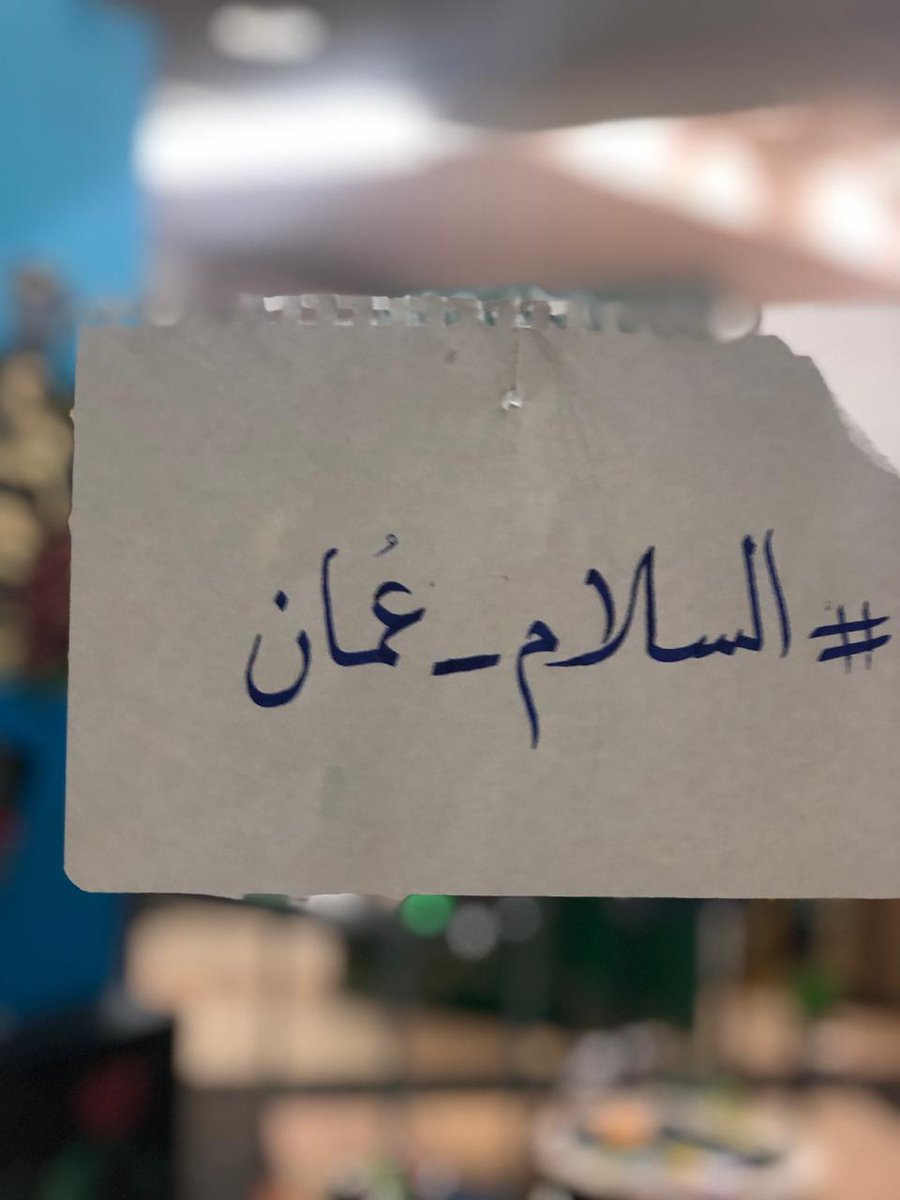 #السلام_عُمان